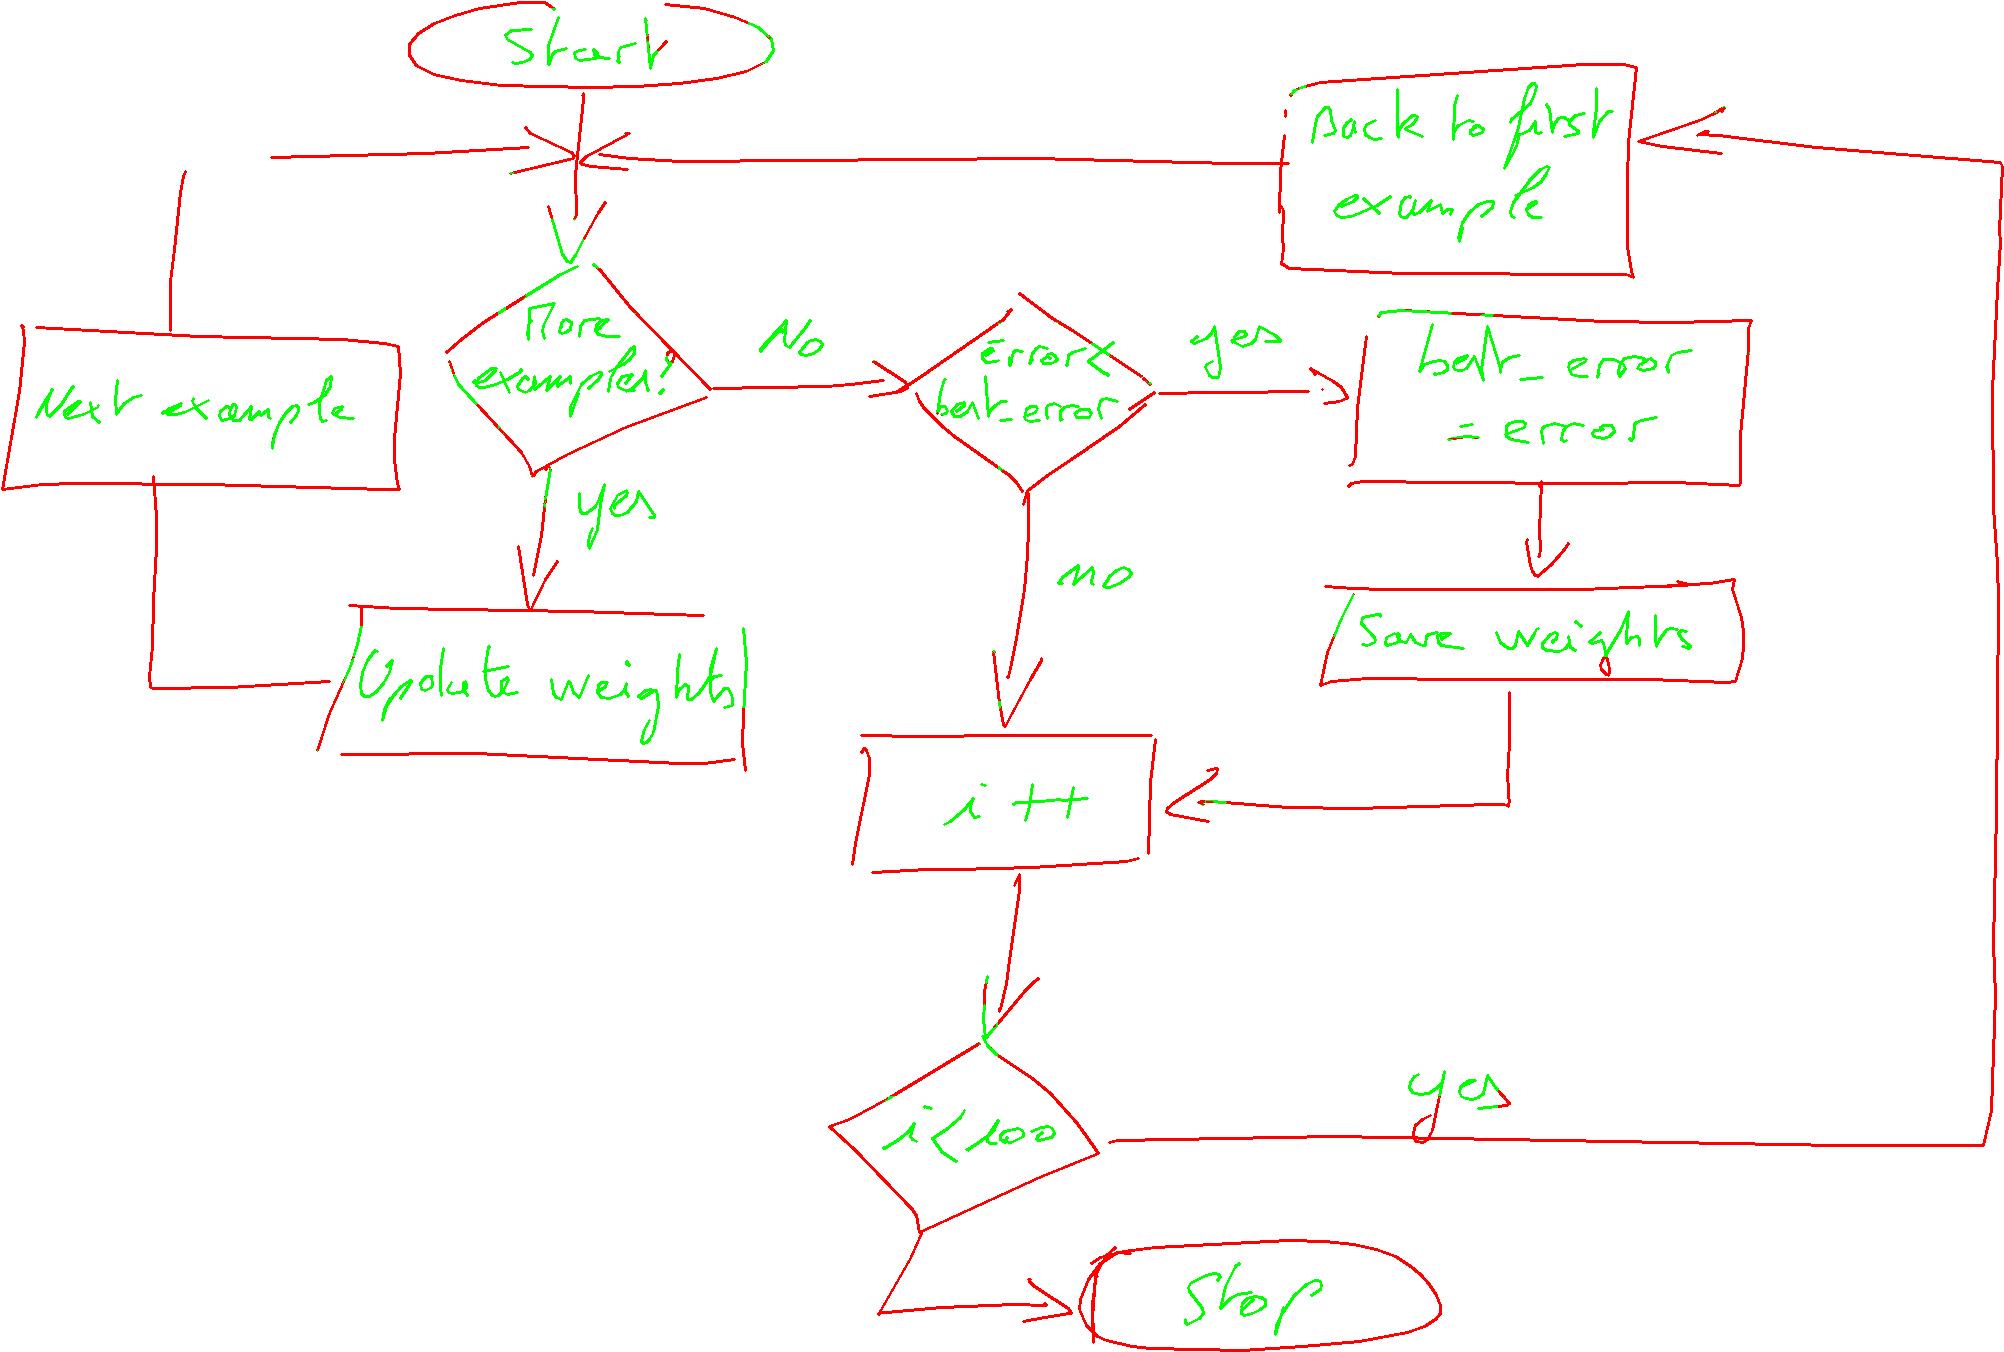 Start
Back to first
example
More
examples?
No
error<
best_error
yes
best_error
= error
Next example
yes
no
Save weights
Update weights
i++
i<100
yes
Stop